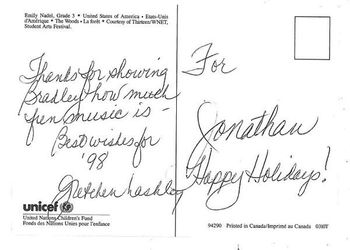 Emily Nadel, Grade 3 • United States of America • Etats-Unis
d'Amérique • The Woods • La forêt • Courtesy of Thirteen/WNET,
Student Arts Festival.
Thanks for showing
Bradley how much
fun music is -
Best wishes for
'98
Gretchen
For
Jonathan
Happy Holidays!
unicef
United Nations Children's Fund
Fonds des Nations Unies pour l'enfance
94290 Printed in Canada/Imprimé au Canada 0307T